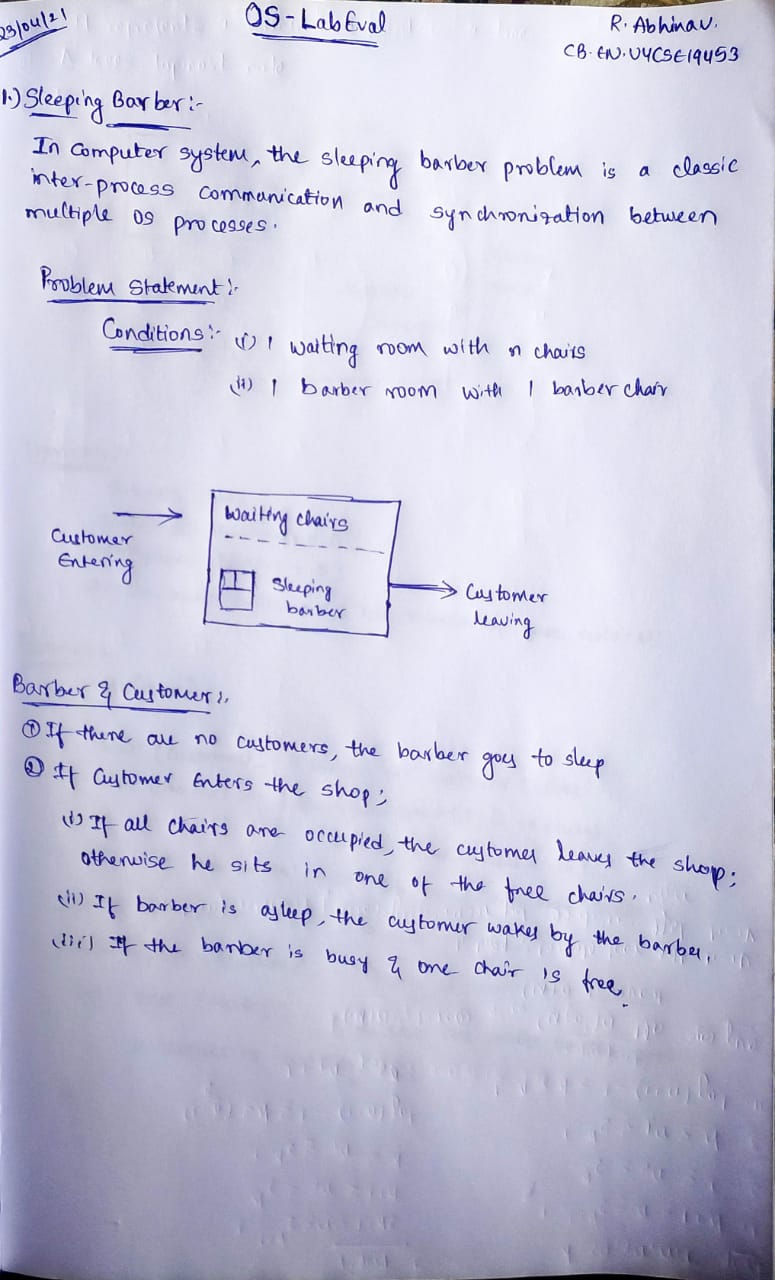 23/04/21
OS-Lab Eval
R. Abhinav.
CB.EN.U4CSE19453
1.) Sleeping Barber:-
In computer system, the sleeping barber problem is a classic
inter-process communication and synchronization between
multiple OS processes.
Problem Statement:-
Conditions:- (i) 1 waiting room with n chairs
(ii) 1 barber room with 1 barber chair
Waiting chairs
Customer
Entering
Sleeping
barber
Customer
leaving
Barber & Customer:-
① If there are no customers, the barber goes to sleep
② If Customer Enters the shop;
(i) If all chairs are occupied, the customer leaves the shop;
otherwise he sits in one of the free chairs.
(ii) If barber is asleep, the customer wakes by the barber.
(iii) If the barber is busy & one chair is free.